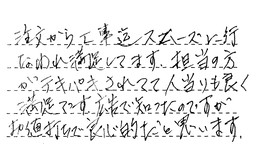 注文から工事迄スムーズに行
なわれ満足してます。担当の方
がテキパキされてて人当りも良く
満足です。広告で知ったのですが
お値打ちで良心的だと思います。